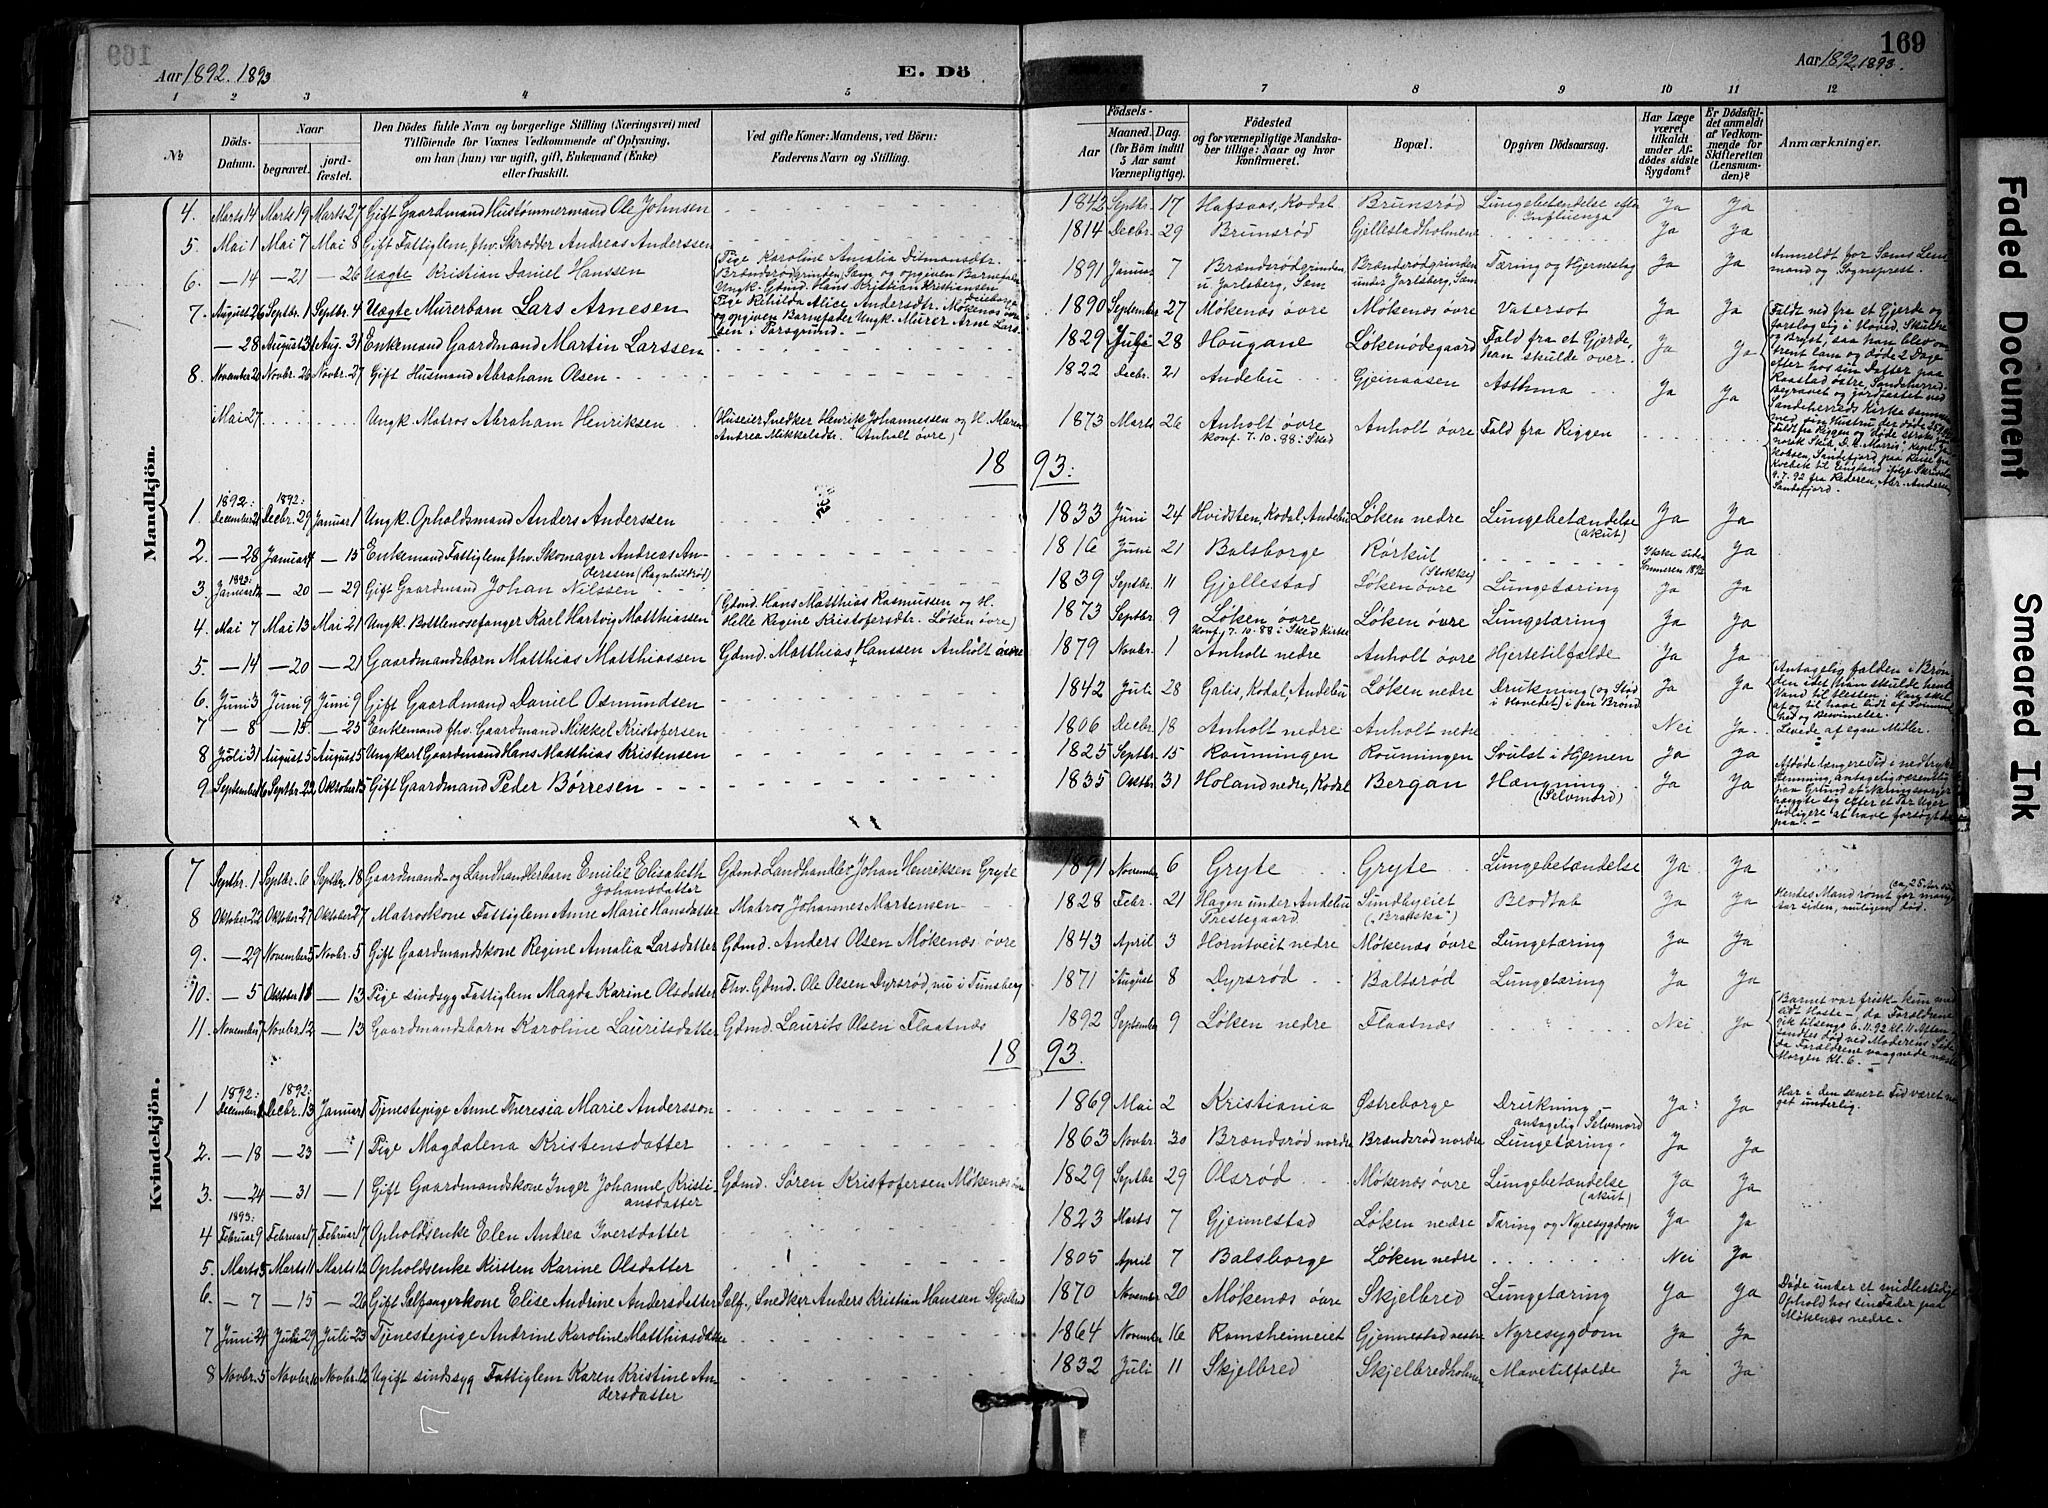 169
Aar 1892. 1893
E. Dö
Aar 1892. 1893.
1 2 3 4 5 7 8 9 10 11 12
№
Döds-Datum.
Naar
begravet.
jordfæstet.
Den Dödes fulde Navn og borgerlige Stilling (Næringsvei) med Tilföiende for Voxnes Vedkommende af Oplysning, om han (hun) var ugift, gift, Enkemand (Enke) eller fraskilt.
Ved gifte Koner: Mandens, ved Börn: Faderens Navn og Stilling.
Födsels-
Aar
Maaned. Dag.
(for Börn indtil 5 Aar samt Værnepligtige).
Födested og for værnepligtige Mandskaber tillige: Naar og hvor Konfirmeret.
Bopæl.
Opgiven Dödsaarsag.
Har Læge været tilkaldt under Afdödes sidste Sygdom?
Er Dödsfaldet anmeldt af Vedkommende for Skifteretten (Lensmanden)?
Anmærkninger.
Mandkjön.
4. Marts 14 Marts 19 Marts 27 Gift Gaardmand Hustømmermand Ole Johnsen 1842 Septbr. 17 Hafsaas, Kodal Brunsrød Lungebetændelse efter Influenga Ja Ja
5. Mai 1 Mai 7 Mai 8 Gift Fattiglem, fhv. Skrædder Andreas Anderssen 1814 Decbr. 29 Brunsrød Gjellestadholmene Ja Ja
6. — 14 — 21 — 26 Uægte Kristian Daniel Hanssen (Pige Karoline Amalia Ditmansdtr. Brændsrødgrinden, Sem og opgiven Barnefader Ungk. Gdmd. Hans Kristian Kristiansen 1891 Januar 7 Brændsrødgrinden u. Jarlsberg, Sem Brændsrødgrinden under Jarlsberg, Sem Tæring og Hjerneslag Ja Ja Anmeldt for Sems Lensmand og Sogneprest.
7. August 26 Septbr. 1 Septbr. 4 Uægte Murerbarn Lars Arnesen Pige Retilda Alice Andersdtr. Møkenæs øvre og opgiven Barnefader Ungk. Murer Arne Larssen i Tarsgrund. 1890 September 27 Møkenæs øvre Møkenæs øvre Vatersot Ja Ja
— 28 August 31 Aug. 31 Enkemand Gaardmand Martin Larssen 1829 Juli 28 Hougane Løkenødegaard Fald fra et Gjerde, han skulde over. Ja Ja Faldt ned fra et Gjerde og forslog sig i Hoved, Skulder og Bryst, saa han blev omtrent lam og døde 2 Dage efter hos sin Datter paa Raastad østre, Sandeherred. Begravet og jordfæstet ved Sandeherreds Kirke sammen med sin Hustru, der døde
8. November 20 Novbr. 26 Novbr. 27 Gift Husmand Abraham Olsen 1822 Decbr. 21 Andebu Gjeinaasen Asthma Ja Ja
Mai 27 Ungk. Matros Abraham Henriksen Huseier, Snedker Henrik Johannessen og H. Maren Andrea Mikkelsdtr. Anholt øvre) 1873 Marts 26 Anholt øvre konf. 7.10.88 i Sked Anholt øvre Fald fra Riggen Faldt fra Riggen og døde straks paa norsk Skib Kapt. Jakobsen, Sandefjord, paa Reise fra Kvebek til England ifølge Skrivelse 9.7.92 fra Rederen, Abr. Andersen, Sandefjord.
18 93:
1. 1892: December 21 1892: Decbr. 29 Januar 1 Ungk. Opholdsmand Anders Anderssen 1833 Juni 24 Hvidsten, Kodal, Andebu Løken nedre Lungebetændelse (akut) Ja Ja
2. — 28 Januar 4 — 15 Enkemand Fattiglem fhv. Skomager Andreas Anderssen (Ragnhilsrød) 1816 Juni 21 Balsborge Rørkul (Stokke) Ikke siden Sommeren 1892 Ja
3. 1893: Januar 12 — 20 — 29 Gift Gaardmand Johan Nilssen 1839 Septbr. 11 Gjellestad Løken øvre Lungetæring Ja Ja
4. Mai 7 Mai 13 Mai 21 Ungk. Bottlenosefanger Karl Hartvig Matthiassen (Gdmd. Hans Matthias Rasmussen og H. Helle Regine Kristofersdtr. Løken øvre) 1873 Septbr. 9 Løken øvre Konf. 7.10.88 i Sked Kirke Løken øvre Lungetæring Ja Ja
5. — 14 — 20 — 21 Gaardmandsbarn Matthias Matthiassen Gdmd. Matthias Hanssen Anholt øvre 1879 Novbr. 1 Anholt nedre Anholt øvre Hjertetilfælde Ja Ja
6. Juni 3 Juni 9 Juni 9 Gift Gaardmand Daniel Osmundsen 1842 Juli 28 Galis, Kodal, Andebu Løken nedre Drukning (og Stød i Hovedet) i en Brønd Ja Ja Antagelig falden i Brønden idet han skulde hente Vand til Hesten. Han skal af og til have lidt af Svimmelhed og Besvimelse.
7 — 8 — 15. — 25 Enkemand fhv. Gaardmand Mikkel Kristofersen 1806 Decbr. 18 Anholt nedre Anholt nedre Nei Ja Levede af egne Midler.
8 Juli 31 August 5 August 5 Ungkarl Gaardmand Hans Matthias Kristensen 1825 Septbr. 15 Rouningen Rouningen Svulst i Hjernen Ja Ja
9 September 16 Septbr. 22 Oktober 15 Gift Gaardmand Peder Børresen 1835 Oktbr. 31 Holand nedre, Kodal Bergan Hængning (Selvmord) Ja Ja Afdøde længere Tid i nedtrykt Stemning, antagelig væsentlig paa Grund af Næringssorger. hængte sig efter et Par Uger tidligere at have forsøgt derpaa.
Kvindekjön.
7 Septbr. 1 Septbr. 6 Septbr. 18 Gaardmands- og Landhandlerbarn Emilie Elisabeth Johansdatter Gdmd. Landhandler Johan Henriksen Gryte 1891 November 6 Gryte Gryte Lungebetændelse Ja Ja
8 Oktober 22 Oktober 27 Oktober 27 Matroskone Fattiglem Anne Marie Hansdatter Matros Johannes Martensen 1828 Febr. 21 Hagen under Andebu Prestegaard Sundbyeiet („Bratska“) Blodtab Ja Ja Hendes Mand rømt for mange (ca. 25 Aar siden) Aar siden, muligens død.
9. — 29 November 5 Novbr. 5 Gift Gaardmandskone Regine Amalia Larsdatter Gdmd. Anders Olsen Møkenæs øvre 1843 April 3 Horntveit nedre Møkenæs øvre Lungetæring Ja Ja
10. — 5 Oktober 11 — 13 Pige sindsyg Fattiglem Magda Karine Olsdatter Fhv. Gdmd. Ole Olsen Dyrsrød, nu i Tunsberg 1871 August 8 Dyrsrød Baltsrød Lungetæring Ja Ja
11. November 7 Novbr. 12 — 13 Gaardmandsbarn Karoline Lauritsdatter Gdmd. Laurits Olsen Flaatnæs 1892 September 9 Løken nedre Flaatnæs Nei Ja Barnet var frisk – kun med lidt Hoste –, da Forældrene gik tilsengs 6.11.92 kl. 11 Aften. fandtes død ved Moderens Side, da Forældrene vaagnede næste Morgen Kl. 6. —
18 93.
1 1892: December 1892: Decbr. 13 Januar 1 Tjenestepige Anne Theresia Marie Andersson 1869 Mai 2 Kristiania Østreborge Drukning – antagelig Selvmord Ja Ja Har i den senere Tid været noget underlig.
2. — 18 — 23 — 1 Pige Magdalena Kristensdatter 1863 Novbr. 30 Brændsrød nordre Brændsrød nordre Lungetæring. Ja Ja
3. — 24 — 31 — 1 Gift Gaardmandskone Inger Johanne Kristiansdatter Gdmd. Søren Kristofersen Møkenæs øvre 1829 Septbr. 29 Olsrød Møkenæs øvre Lungebetændelse (akut) Ja Ja
4 1893: Februar 9 Februar 17 Februar 17 Opholdsenke Elen Andrea Iversdatter 1823 Marts 7 Gjennestad Løken nedre Tæring og Nyresygdom Ja Ja
5. Marts 5 Marts 11 Marts 12 Opholdsenke Kirsten Karine Olsdatter 1805 April 7 Balsborge Løken nedre Nei Ja
6. — 7 — 15 — 26 Gift Sælfangerkone Elise Andrine Andersdatter Sælf., Snedker Anders Kristian Hanssen Skjelbred 1870 November 20 Møkenæs øvre Skjelbred Lungetæring Ja Ja Døde under et midlertidigt Ophold hos sin Fader paa Møkenæs nedre.
7 Juni 24 Juli 29 Juli 23 Tjenestepige Andrine Karoline Matthiasdatter 1864 November 16 Ramsheimeiet Gjennestad vestre Nyresygdom Ja Ja
8 Novbr. 5 Novbr. Novbr. 12 Ugift sindssyg Fattiglem Karen Kristine Andersdatter 1832 Juli 11 Skjelbred Skjelbredholmen Mavetilfælde Ja Ja
Faded Document
Smeared Ink